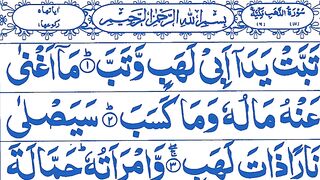 سُوْرَةُ اللَّهَبِ مَكِّيَّةٌ بِسْمِ اللهِ الرَّحْمٰنِ الرَّحِيْمِ اٰيَاتُهَا ٥ رُكُوْعُهَا ١
تَبَّتْ يَدَاۤ اَبِيْ لَهَبٍ وَّتَبَّ ؕ۝١ مَاۤ اَغْنٰى
عَنْهُ مَالُهٗ وَمَا كَسَبَ ؕ۝٢ سَيَصْلٰى
نَارًا ذَاتَ لَهَبٍ ۝٣ وَّامْرَاَتُهٗ ؕ حَمَّالَةَ